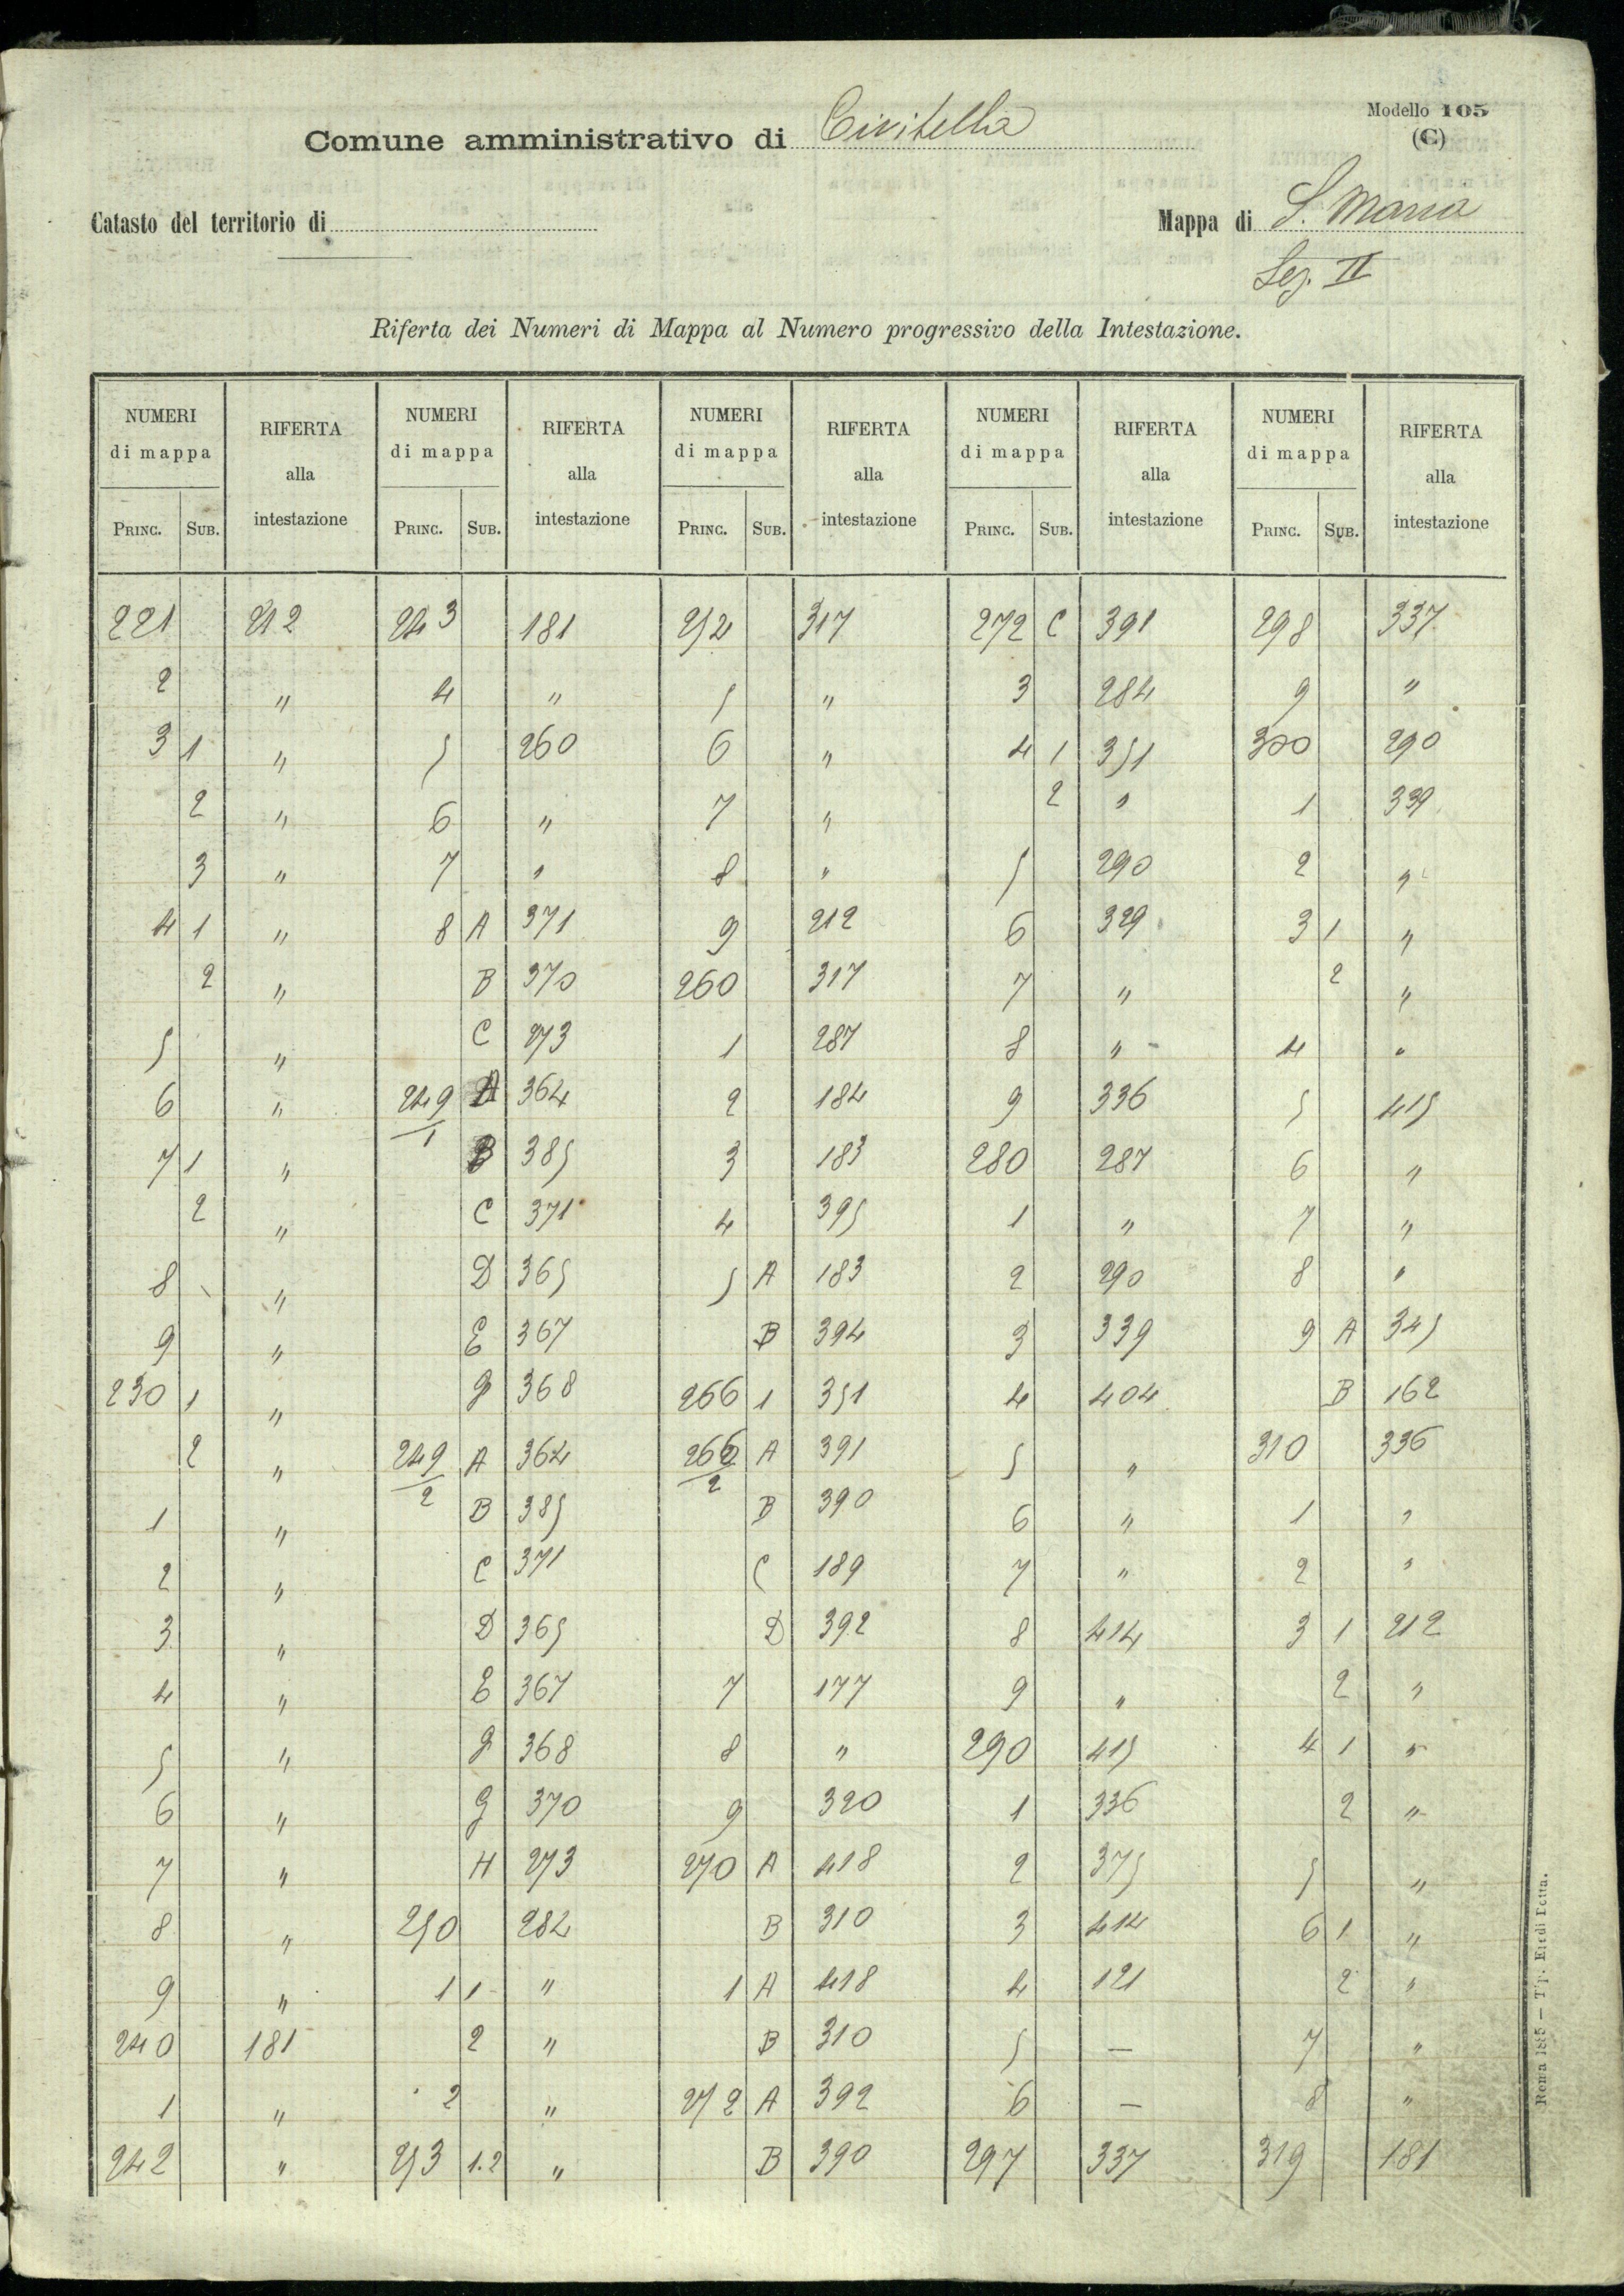 Modello 105
(C)
Comune amministrativo di Civitella
Catasto del territorio di
Mappa di S. Maria
Sez. II
Riferta dei Numeri di Mappa al Numero progressivo della Intestazione.
NUMERI di mappa RIFERTA alla intestazione NUMERI di mappa RIFERTA alla intestazione NUMERI di mappa RIFERTA alla intestazione NUMERI di mappa RIFERTA alla intestazione NUMERI di mappa RIFERTA alla intestazione
PRINC. SUB. PRINC. SUB. PRINC. SUB. PRINC. SUB. PRINC. SUB.
221 212 243 181 254 317 272 C 391 298 337
2 " 4 " 5 " 3 284 9 "
3 1 " 5 260 6 " 4 1 351 300 290
2 " 6 " 7 " 2 " 1 339
3 " 7 " 8 " 5 290 2 "
4 1 " 8 A 371 9 212 6 329 3 1 "
2 " B 370 260 317 7 " 2 "
5 " C 273 1 287 8 " 4 "
6 " 249/1 A 364 2 184 9 336 5 415
7 1 " B 385 3 183 280 287 6 "
2 " C 371 4 395 1 " 7 "
8 " D 365 5 A 183 2 290 8 "
9 " E 367 B 394 3 339 9 A 345
230 1 " 368 266 1 351 4 404 B 162
2 " 249/2 A 364 266/2 A 391 5 " 310 336
1 " B 385 B 390 6 " 1 "
2 " C 371 C 189 7 " 2 "
3 " D 365 D 392 8 414 3 1 212
4 " E 367 7 177 9 " 2 "
5 " 368 8 " 290 415 4 1 "
6 " g 370 9 320 1 336 2 "
7 " H 273 270 A 418 2 375 5 "
8 " 250 284 B 310 3 414 6 1 "
9 " 1 1 " 1 A 418 4 121 2 "
240 181 2 " B 310 5 — 7 "
1 " 2 " 272 A 392 6 — 8 "
242 " 253 1.2 " B 390 297 337 319 181
Roma 1885 — Tip. Eredi Botta.